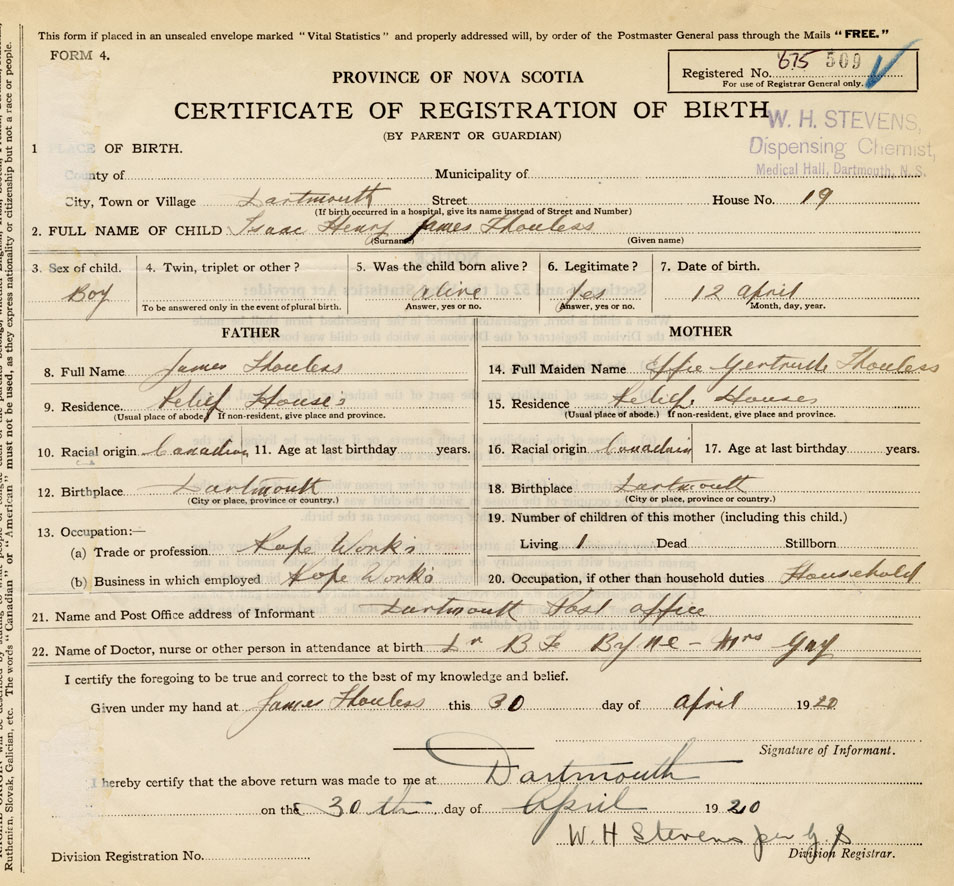 This form if placed in an unsealed envelope marked "Vital Statistics" and properly addressed will, by order of the Postmaster General pass through the Mails "FREE."
FORM 4.
Registered No. 675 509
For use of Registrar General only.
PROVINCE OF NOVA SCOTIA
CERTIFICATE OF REGISTRATION OF BIRTH
(BY PARENT OR GUARDIAN)
W. H. STEVENS,
Dispensing Chemist,
Medical Hall, Dartmouth, N. S.
1 PLACE OF BIRTH.
County of Municipality of
City, Town or Village Dartmouth Street House No. 19
(If birth occurred in a hospital, give its name instead of Street and Number)
2. FULL NAME OF CHILD Isaac Henry James Thouless
(Surname) (Given name)
3. Sex of child. 4. Twin, triplet or other? 5. Was the child born alive? 6. Legitimate? 7. Date of birth.
Boy alive Yes 12 April
To be answered only in the event of plural birth. Answer, yes or no. Answer, yes or no. Month, day, year.
FATHER MOTHER
8. Full Name James Thouless 14. Full Maiden Name Effie Gertrude Thouless
9. Residence Relief House's 15. Residence Relief Houses
(Usual place of abode.) If non-resident, give place and province. (Usual place of abode.) If non-resident, give place and province.
10. Racial origin Canadian 11. Age at last birthday years. 16. Racial origin Canadian 17. Age at last birthday years.
12. Birthplace Dartmouth 18. Birthplace Dartmouth
(City or place, province or country.) (City or place, province or country.)
13. Occupation:— 19. Number of children of this mother (including this child.)
(a) Trade or profession Rope Works Living 1 Dead Stillborn
(b) Business in which employed Rope Works 20. Occupation, if other than household duties Household
21. Name and Post Office address of Informant Dartmouth Post office
22. Name of Doctor, nurse or other person in attendance at birth Dr B Byrne - Mrs Gay
I certify the foregoing to be true and correct to the best of my knowledge and belief.
Given under my hand at James Thouless this 30 day of April 1920
Signature of Informant.
I hereby certify that the above return was made to me at Dartmouth
on the 30th day of April 1920
W. H Stevens per G S
Division Registration No. Division Registrar.
Ruthenien, Slovak, Galician, etc. The words "Canadian" or "American" must not be used, as they express nationality or citizenship but not a race or people.